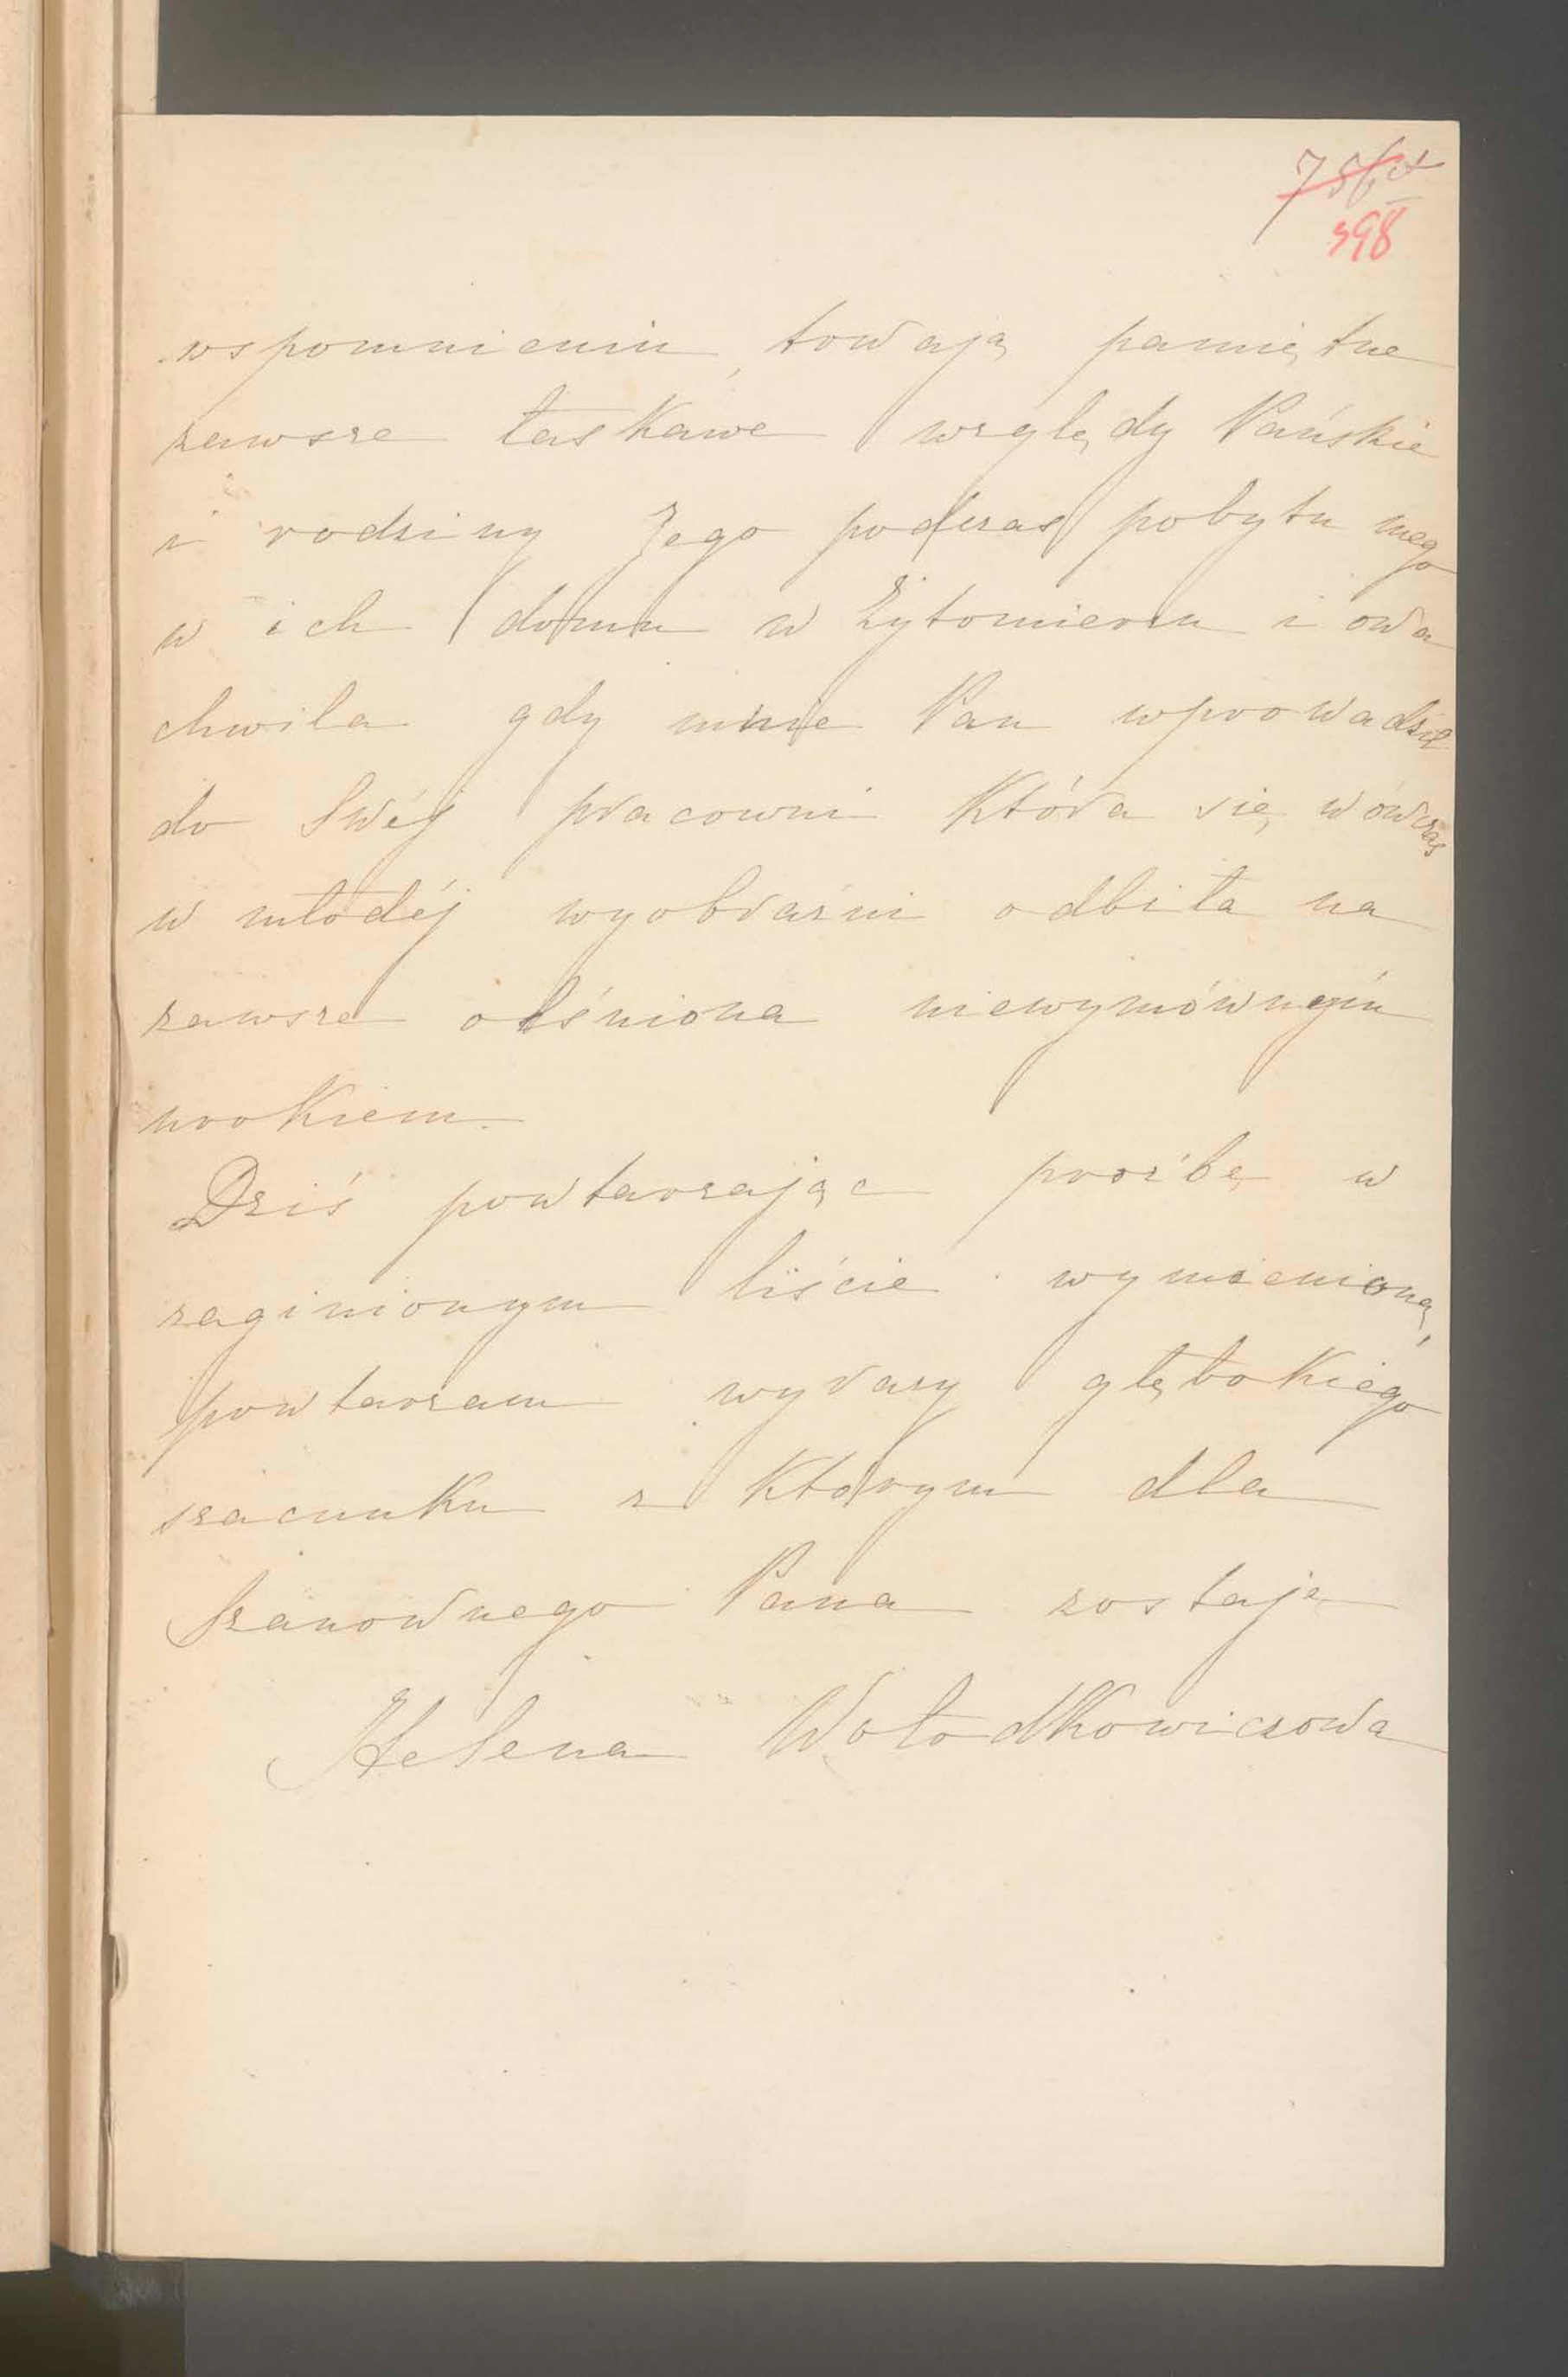 398
wspomnieniu, torują pamiętne
zawsze łaskawe względy Pańskie
i rodziny Jego podczas pobytu mego
w ich domu w Żytomierzu i owa
chwila gdy mnie Pan wprowadził
do Swéj pracowni która się wówczas
w młodéj wyobraźni odbiła na
zawsze olśniona niewymównym
urokiem.
Dziś powtarzając prośbę w
zaginionym liście wymienioną,
powtarzam wyrazy głębokiego
szacunku z którym dla
Szanownego Pana zostaję
Helena Wołodkowiczowa